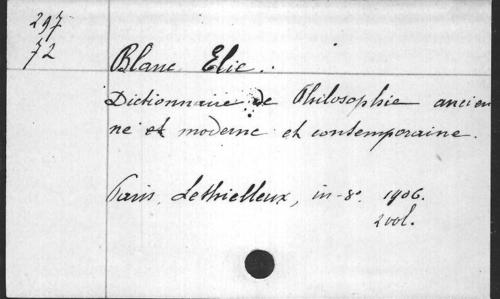 297
72
Blanc Elie.
Dictionnaire de Philosophie ancien
ne et moderne et contemporaine.
Paris, Lethielleux, in-8° 1906.
2 vol.